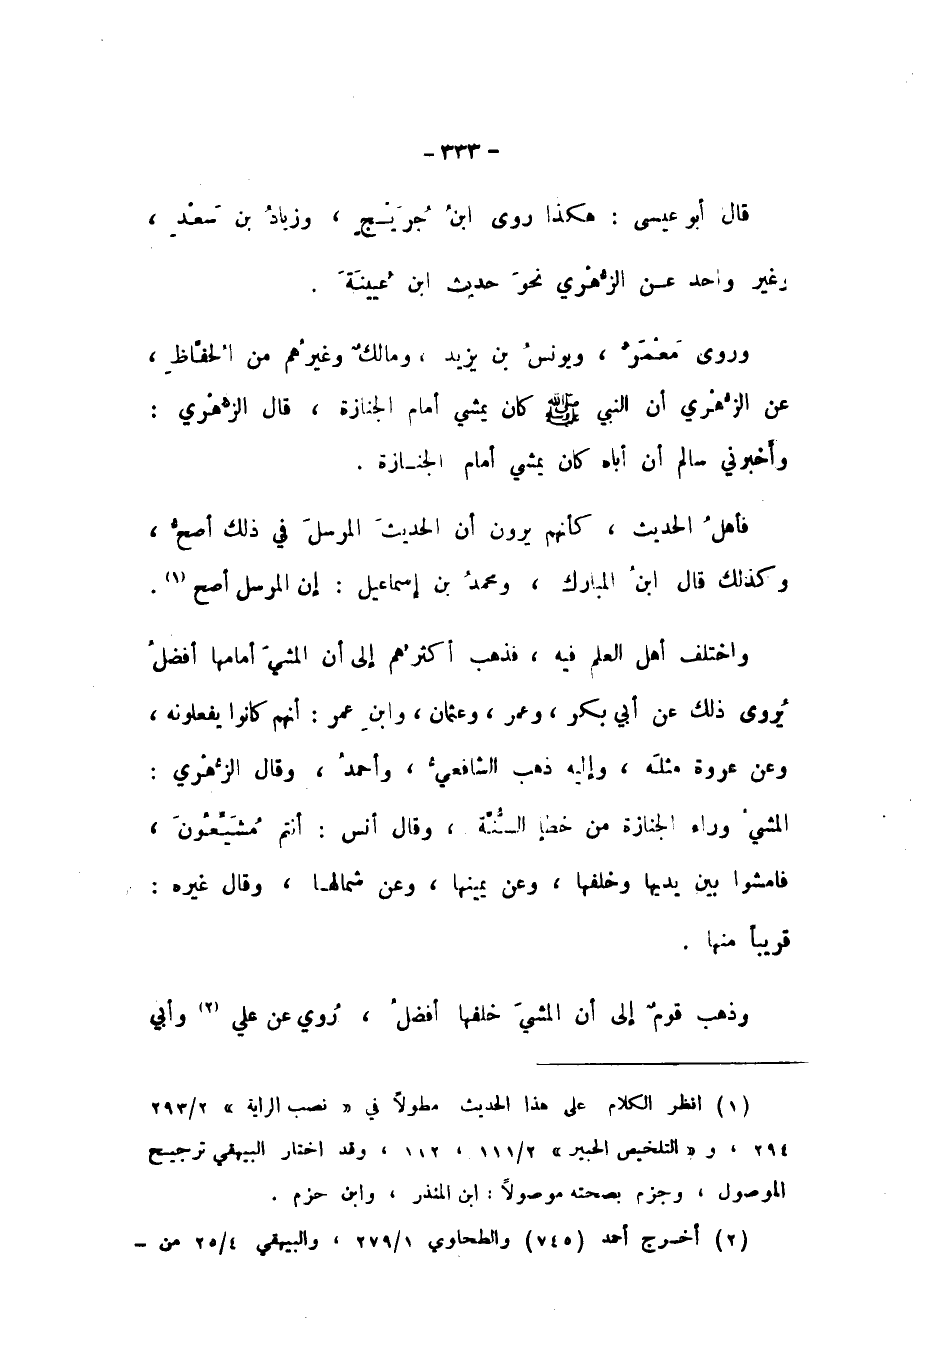 - ٣٣٣ -
قال أبو عيسى : هكذا روى ابنُ جُرَيْجٍ ، وزيادُ بن سَعْدٍ ،
وغير واحد عن الزُّهْري نحوَ حديث ابن عُيينَةَ .
وروى مَعْمَرٌ ، ويونسُ بن يزيد ، ومالكٌ وغيرُهم من الحفَّاظِ ،
عن الزُّهْري أن النبي ﷺ كان يمشي أمام الجنازة ، قال الزُّهْري :
وأَخبرني سالم أن أباه كان يمشي أمام الجنازة .
فأهلُ الحديث ، كأنهم يرون أن الحديثَ المرسلَ في ذلك أصحُّ ،
وكذلك قال ابنُ المبارك ، ومحمدُ بن إسماعيل : إن المرسل أصح (١) .
واختلف أهل العلم فيه ، فذهب أكثرُهم إلى أن المشيَ أمامها أفضلُ
يُروى ذلك عن أبي بكر ، وعمر ، وعثمان ، وابنِ عمر : أنهم كانوا يفعلونه ،
وعن عروة مثلَه ، وإليه ذهب الشافعيُّ ، وأحمدُ ، وقال الزُّهْري :
المشيُ وراء الجنازة من خطإ السُّنَّة ، وقال أنس : أنتم مُشَيِّعُونَ ،
فامشوا بين يديها وخلفها ، وعن يمينها ، وعن شمالها ، وقال غيره :
قريباً منها .
وذهب قومٌ إلى أن المشيَ خلفها أفضلُ ، رُوي عن علي (٢) وأبي
(١) انظر الكلام على هذا الحديث مطولاً في « نصب الراية » ٢٩٣/٢
٢٩٤ ، و « التلخيص الحبير » ١١١/٢ ، ١١٢ ، وقد اختار البيهقي ترجيح
الموصول ، وجزم بصحته موصولاً : ابن المنذر ، وابن حزم .
(٢) أخرج أحمد (٧٤٥) والطحاوي ٢٧٩/١ ، والبيهقي ٢٥/٤ من -